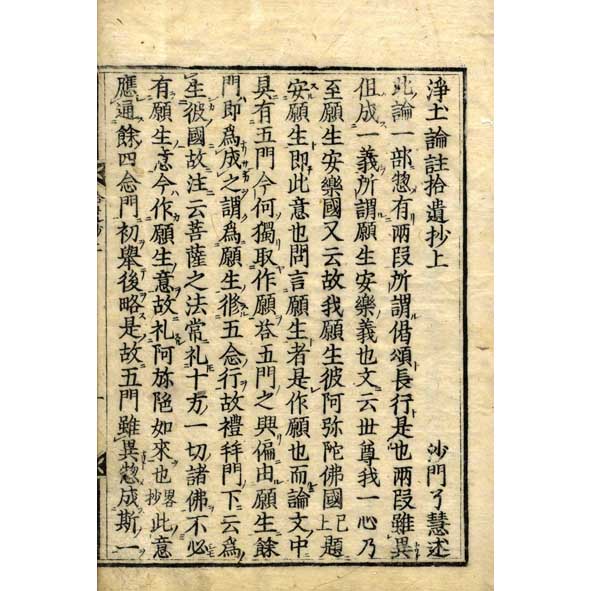 淨土論註拾遺抄上　　　沙門了慧述
此論一部惣有兩段所謂偈頌長行是也兩段雖異
但成一義所謂願生安樂義也文云世尊我一心乃
至願生安樂國又云故我願生彼阿弥陀佛國已上題
安願生即此意也問言願生者是作願也而論文中
具有五門今何獨取作願荅五門之興偏由願生餘
門即爲成之謂爲願生修五念行故禮拜門下云爲
生彼國故注云菩薩之法常礼十方一切諸佛不必
有願生意今作願生意故礼阿弥陁如來也畧抄此意
應通餘四念門初舉後略是故五門雖異惣成斯一